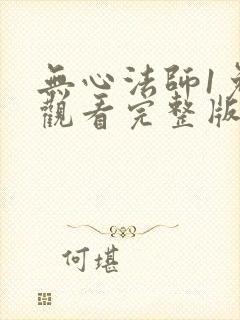 無心法師1
觀看完整版
何堪